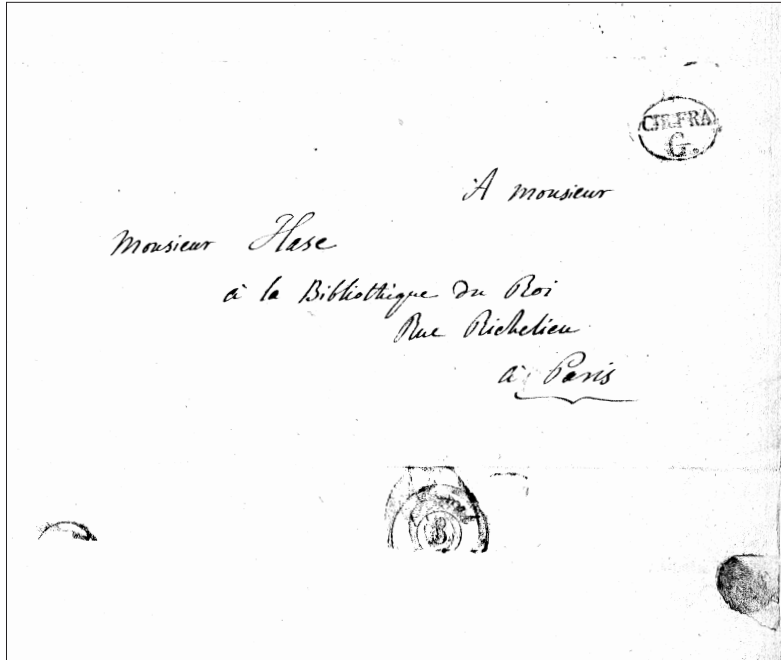 CH.FRA
G.
A monsieur
Monsieur Hase
à la Bibliothèque du Roi
Rue Richelieu
à Paris
B